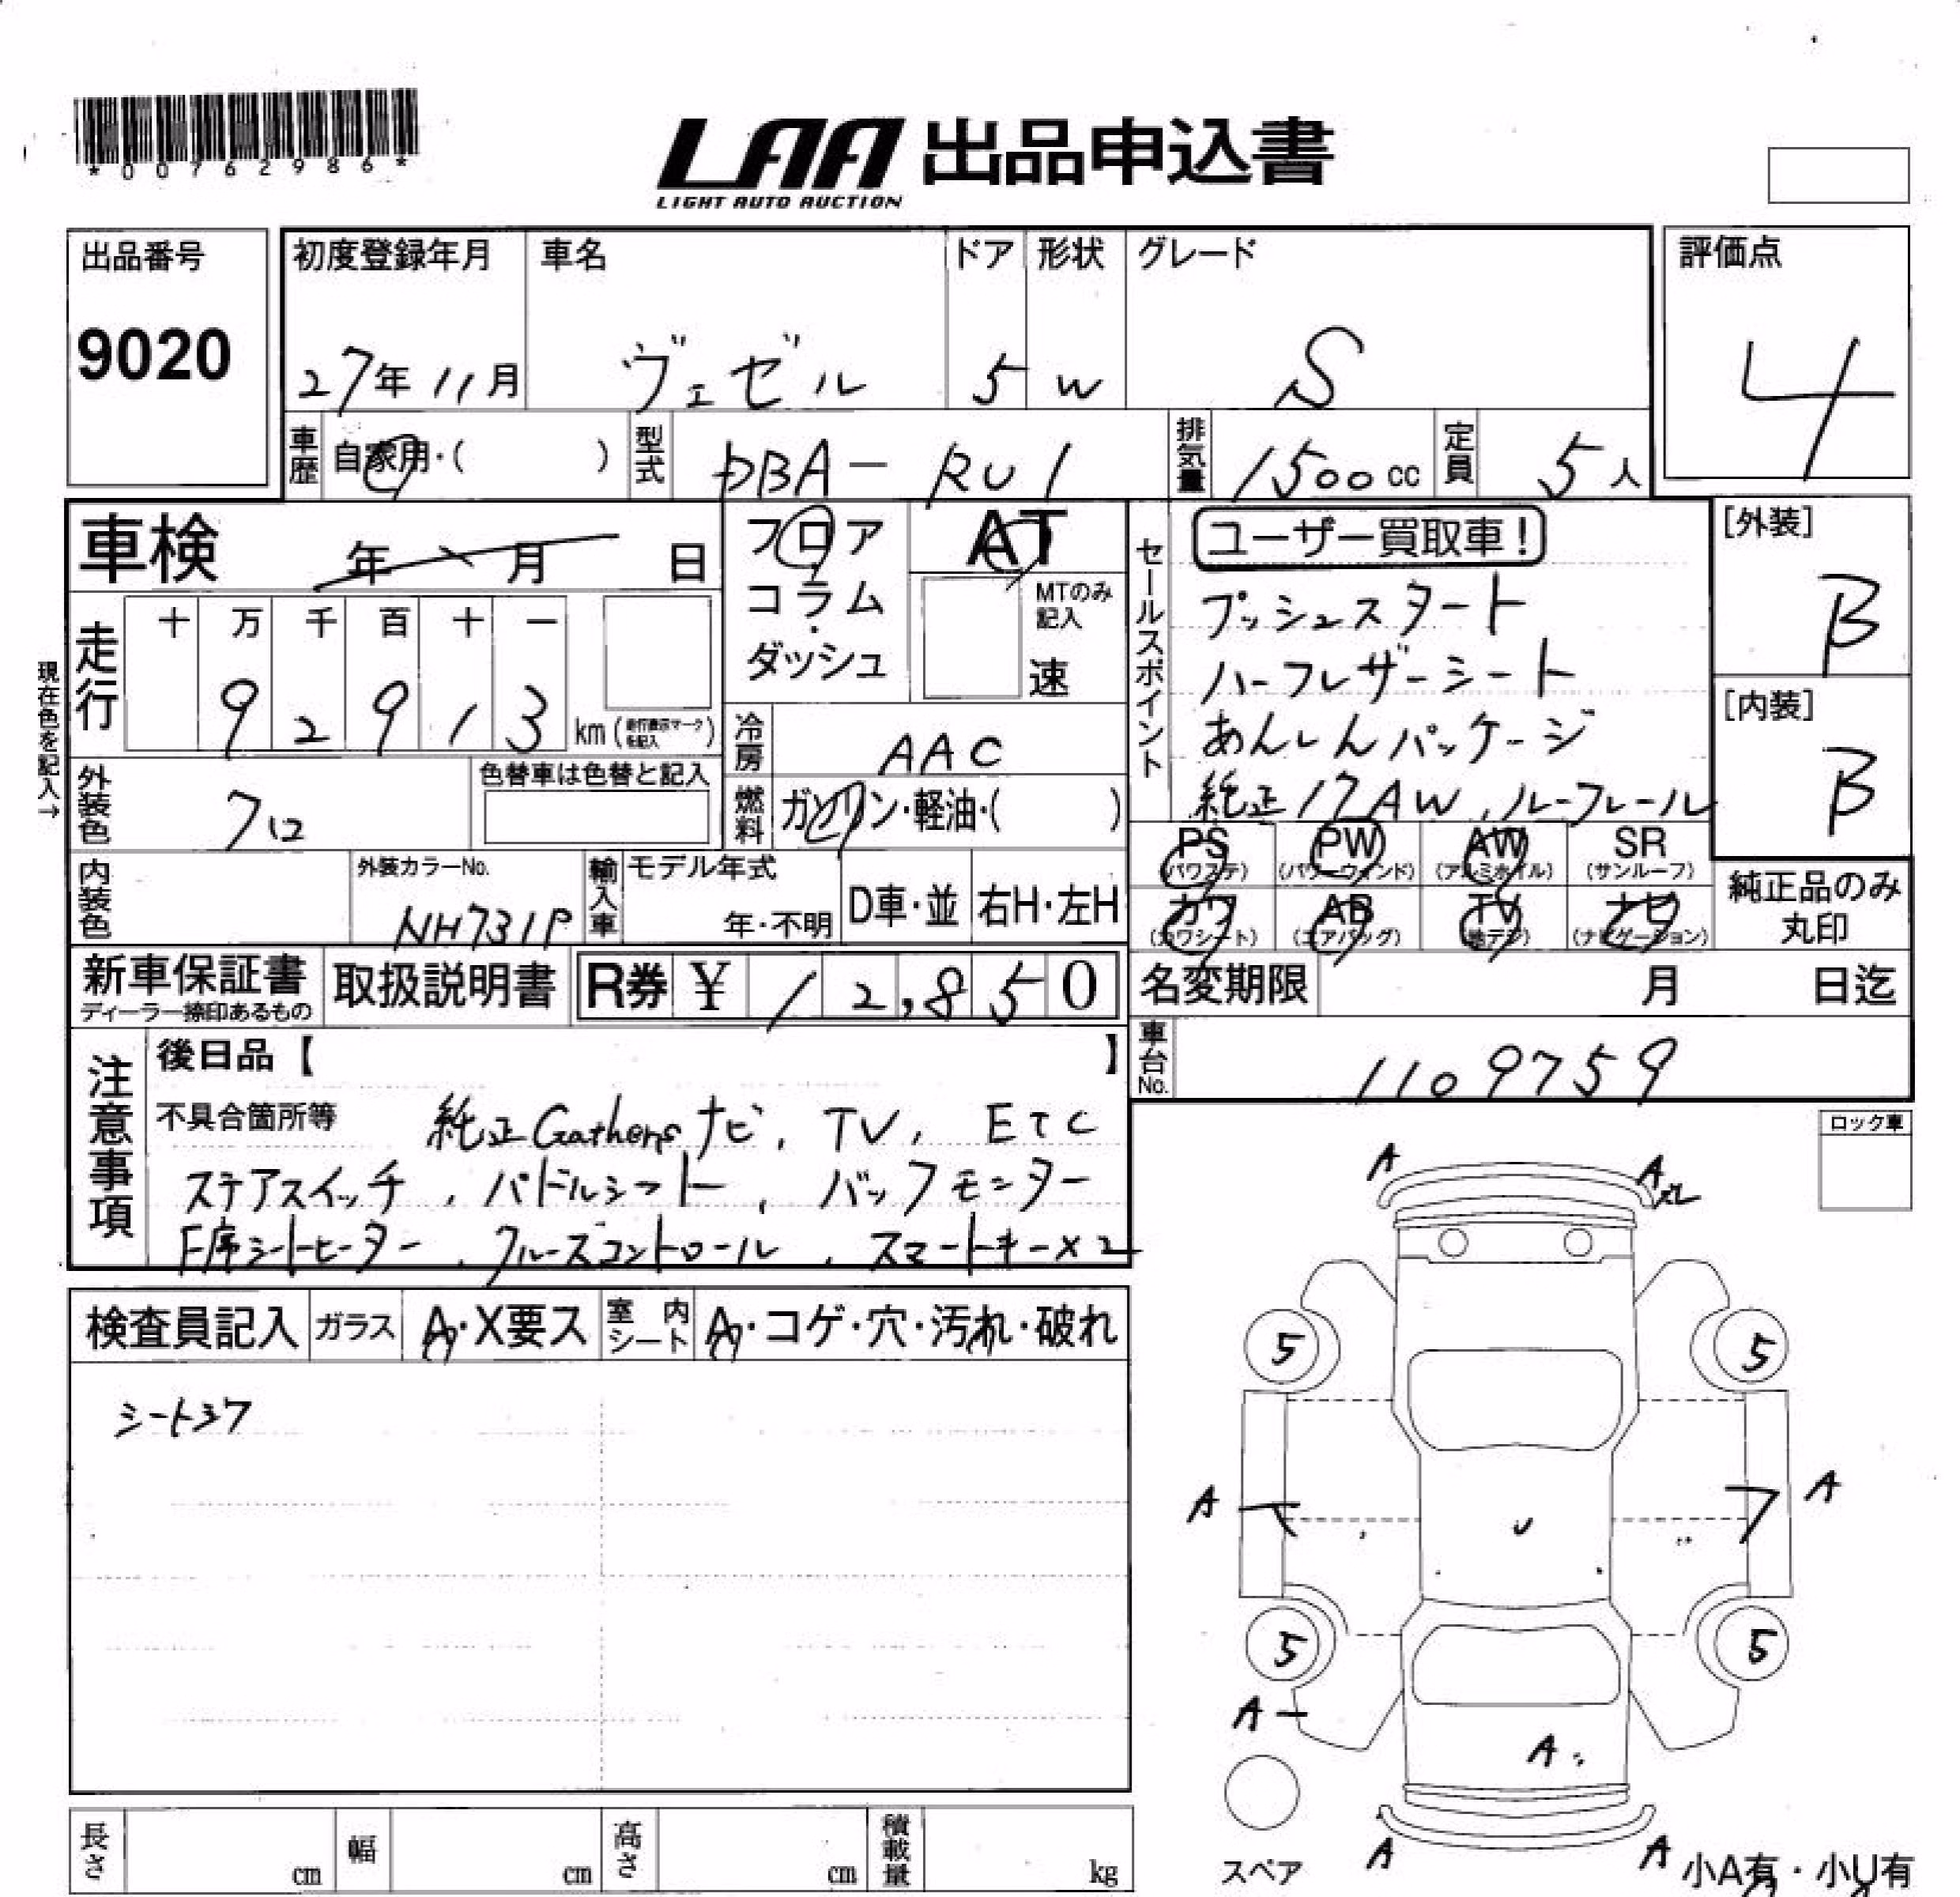 *00762986*
LAA 出品申込書
LIGHT AUTO AUCTION
出品番号
9020
初度登録年月
27年11月
車名
ヴェゼル
ドア
5
形状
W
グレード
S
評価点
4
車歴
自家用・( )
型式
DBA-RU1
排気量
1500cc
定員
5人
車検 年 月 日
フロア
コラム・
ダッシュ
AT
MTのみ記入
速
セールスポイント
ユーザー買取車!
プッシュスタート
ハーフレザーシート
あんしんパッケージ
純正17AW、ルーフレール
[外装]
B
[内装]
B
現在色を記入→
走行
十 万 千 百 十 一
9 2 9 1 3 km(走行表示マークを記入)
冷房
AAC
外装色
クロ
色替車は色替と記入
燃料
ガソリン・軽油・( )
PS (パワステ)
PW (パワーウィンド)
AW (アルミホイル)
SR (サンルーフ)
カワ (カワシート)
AB (エアバッグ)
TV (地デジ)
ナビ (ナビゲーション)
純正品のみ
丸印
内装色
外装カラーNo.
NH731P
輸入車
モデル年式
年・不明
D車・並
右H・左H
新車保証書
ディーラー捺印あるもの
取扱説明書
R券 ¥ 12,850
名変期限 月 日迄
車台No.
1109759
注意事項
後日品【 】
不具合箇所等 純正Gathersナビ、TV、ETC
ステアスイッチ、パドルシフト、バックモニター
F席シートヒーター、クルーズコントロール、スマートキー×2
ロック車
検査員記入
ガラス
A・X要ス
室内シート
A・コゲ・穴・汚れ・破れ
A
A
5
5
A
A
U
5
5
A
A
A
A
スペア
小A有・小U有
長さ cm
幅 cm
高さ cm
積載量 kg